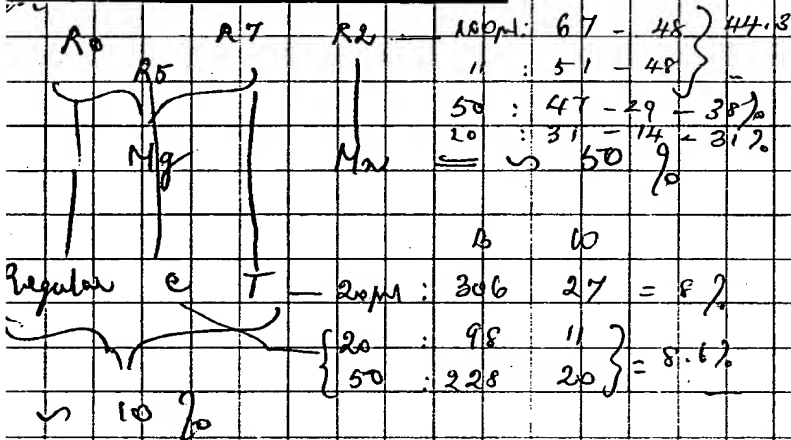 R0 R7 R2 — 100µl: 67 - 48 } 44.3
R5 " : 51 - 48
50 : 47 - 29 - 38%
20 : 31 - 14 - 31%
Mg Mn = ~ 50 %
B W
Regular C T — 20µl : 306 27 = 8%
{ 20 : 98 11 } = 8.6%
{ 50 : 228 20 }
~ 10 %